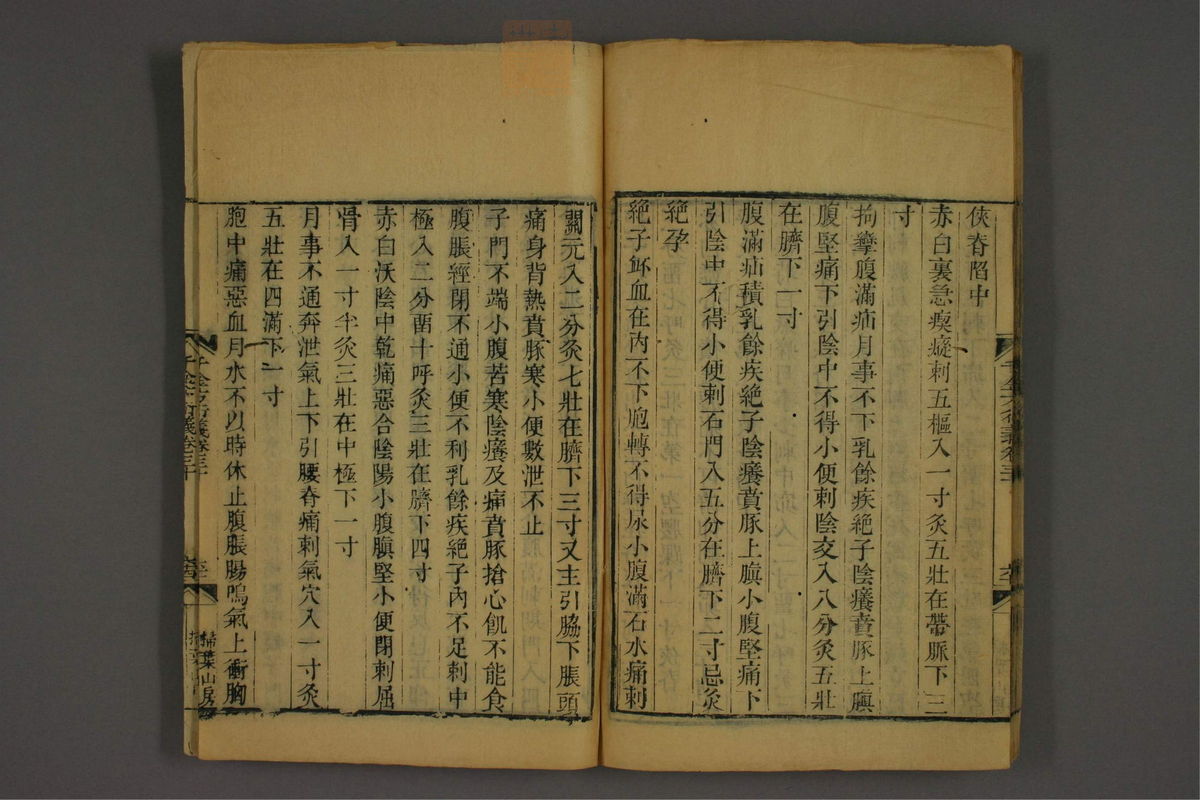 俠脊陷中
赤白裏急瘈瘲刺五樞入一寸灸五壯在帶脈下三
寸
拘攣腹滿疝月事不下乳餘疾絕子陰癢賁豚上䐜
腹堅痛下引陰中不得小便刺陰交入八分灸五壯
在臍下一寸
腹滿疝積乳餘疾絕子陰癢賁豚上䐜小腹堅痛下
引陰中不得小便刺石門入五分在臍下二寸忌灸
絕孕
絕子衃血在內不下胞轉不得尿小腹滿石水痛刺
關元入二分灸七壯在臍下三寸又主引脇下脹頭
痛身背熱賁豚寒小便數泄不止
子門不端小腹苦寒陰癢及痛賁豚搶心飢不能食
腹脹經閉不通小便不利乳餘疾絕子內不足刺中
極入二分留十呼灸三壯在臍下四寸
赤白沃陰中乾痛惡合陰陽小腹䐜堅小便閉刺屈
骨入一寸半灸三壯在中極下一寸
月事不通奔泄氣上下引腰脊痛刺氣穴入一寸灸
五壯在四滿下一寸
胞中痛惡血月水不以時休止腹脹腸鳴氣上衝胸
千金方衍義卷三十
掃葉山房